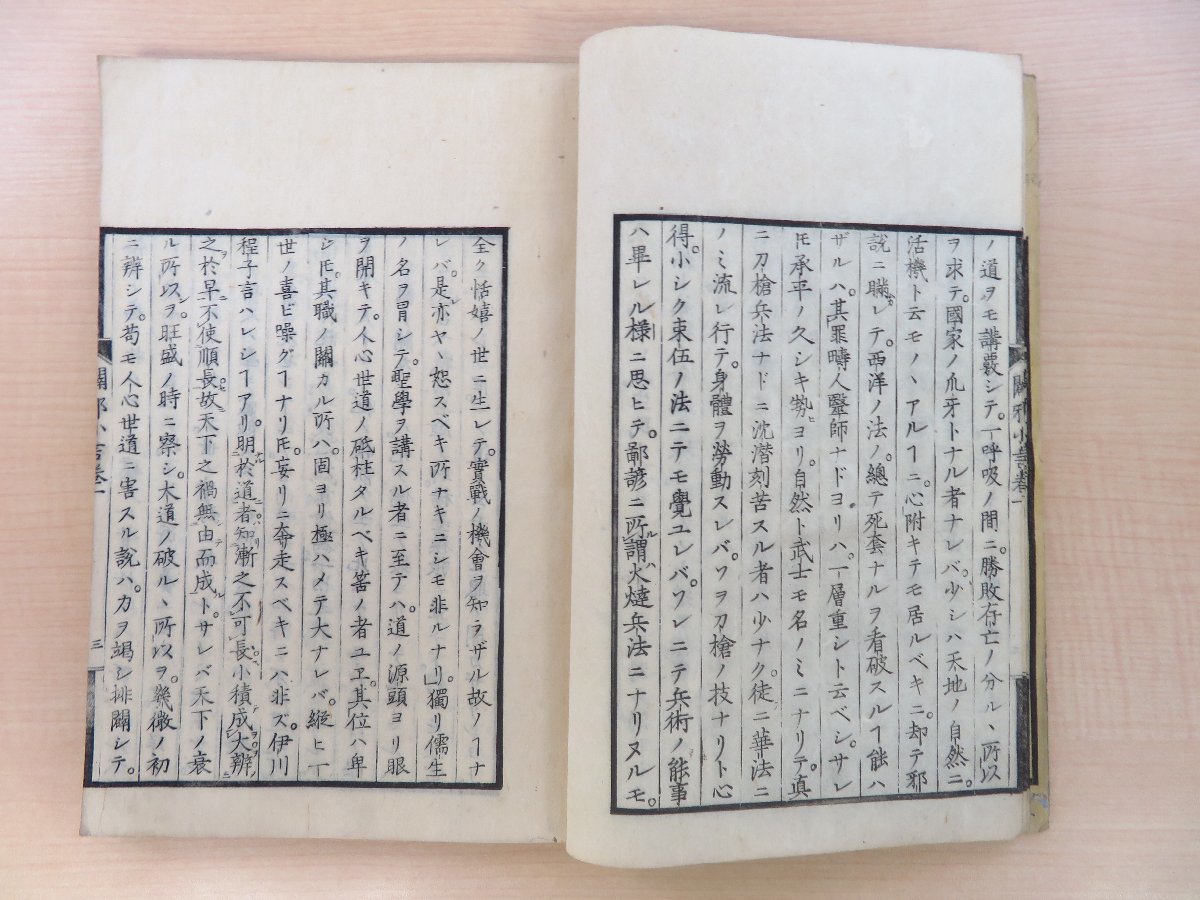 ノ道ヲモ講覈シテ。一呼吸ノ間ニ。勝敗存亡ノ分ルヽ所以
ヲ求テ。國家ノ爪牙トナル者ナレバ。少シハ天地ノ自然ニ。
活機ト云モノヽアルヿニ。心附キテモ居ルベキニ。却テ邪
說ニ瞞サレテ。西洋ノ法ノ。總テ死套ナルヲ看破スルヿ能ハ
ザルハ。其罪時人醫師ナドヨリハ。一層重シト云ベシ。サレ
𪜈承平ノ久シキ勢ヨリ。自然ト武士モ名ノミニナリテ。眞
ニ刀槍兵法ナドニ沈潜刻苦スル者ハ少ナク。徒ニ華法ニ
ノミ流レ行テ。身體ヲ勞動スレバ。ソヲ刀槍ノ技ナリト心
得。小シク束伍ノ法ニテモ覺ユレバ。ソレニテ兵術ノ能事
ハ畢レル様ニ思ヒテ。鄙諺ニ所謂火燵兵法ニナリヌルモ。
闢邪小言卷一
全ク恬嬉ノ世ニ生レテ。實戰ノ機會ヲ知ラザル故ノヿナ
レバ。是亦ヤヽ恕スベキ所ナキニシモ非ルナリ。獨リ儒生
ノ名ヲ冐シテ。聖學ヲ講スル者ニ至テハ。道ノ源頭ヨリ眼
ヲ開キテ。人心世道ノ砥柱タルベキ筈ノ者ユヱ。其位ハ卑
シ𪜈。其職ノ關カル所ハ。固ヨリ極ハメテ大ナレバ。縱ヒ一
世ノ喜ビ噪グヿナリ𪜈。妄リニ奔走スベキニハ非ズ。伊川
程子言ハレシヿアリ。明於道者知漸之不可長小積成大辨
之於早不使順長故天下之禍無由而成ト。サレバ天下ノ衰
ル所以ヲ。旺盛ノ時ニ察シ。大道ノ破ルヽ所以ヲ。幾微ノ初
ニ辨シテ。苟モ人心世道ニ害スル說ハ。力ヲ竭シ排闢シテ。
闢邪小言卷一
三